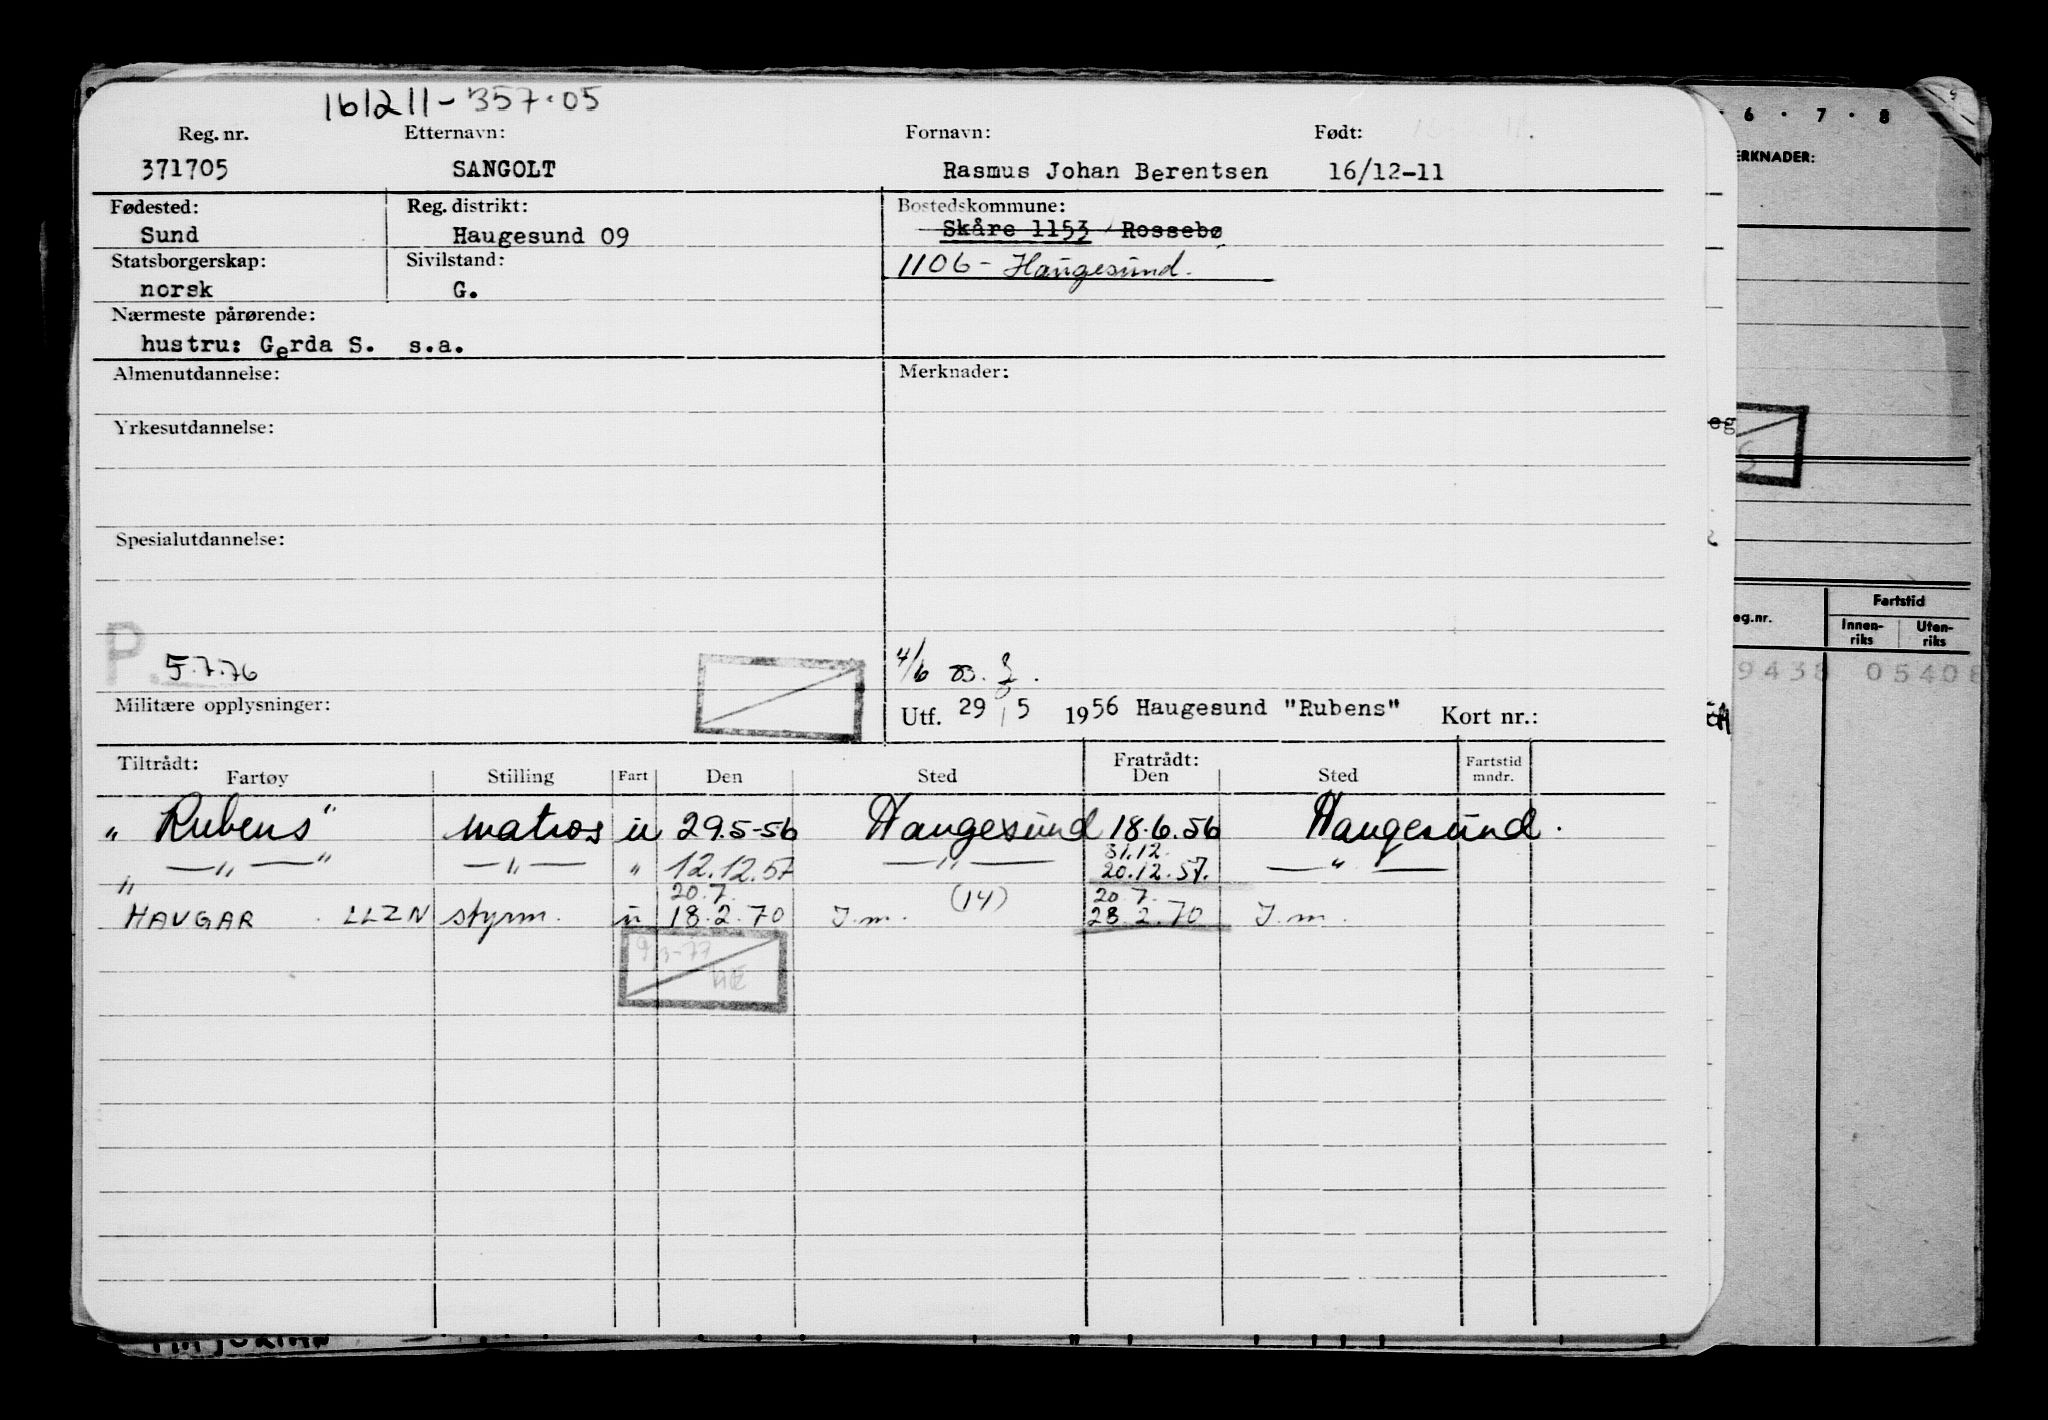 161211-357.05
Reg. nr. Etternavn: Fornavn: Født:
371705 SANGOLT Rasmus Johan Berentsen 16/12-11
Fødested: Reg. distrikt: Bostedskommune:
Sund Haugesund 09 Skåre 1153 Rossebø
Statsborgerskap: Sivilstand: 1106 - Haugesund.
norsk G.
Nærmeste pårørende:
hustru: Gerda S. s.a.
Almenutdannelse: Merknader:
Yrkesutdannelse:
Spesialutdannelse:
P.
5.7.76 4/6
Militære opplysninger: Utf. 29/5 1956 Haugesund "Rubens" Kort nr.:
Tiltrådt: Fratrådt: Fartstid
Fartøy Stilling Fart Den Sted Den Sted mndr.
"Rubens" matros u 29.5-56 Haugesund 18.6.56 Haugesund.
31.12.
" —"—" —"— " 12.12.57 —"— 20.12.57. —"—
20.7. (14) 20.7.
HAUGAR LLZN styrm. u 18.2.70 I.m. 28.2.70 I.m.
9/3-77
6 . 7 . 8
ERKNADER:
eg
Fartstid
eg.nr. Innen-riks Uten-riks
9438 05408